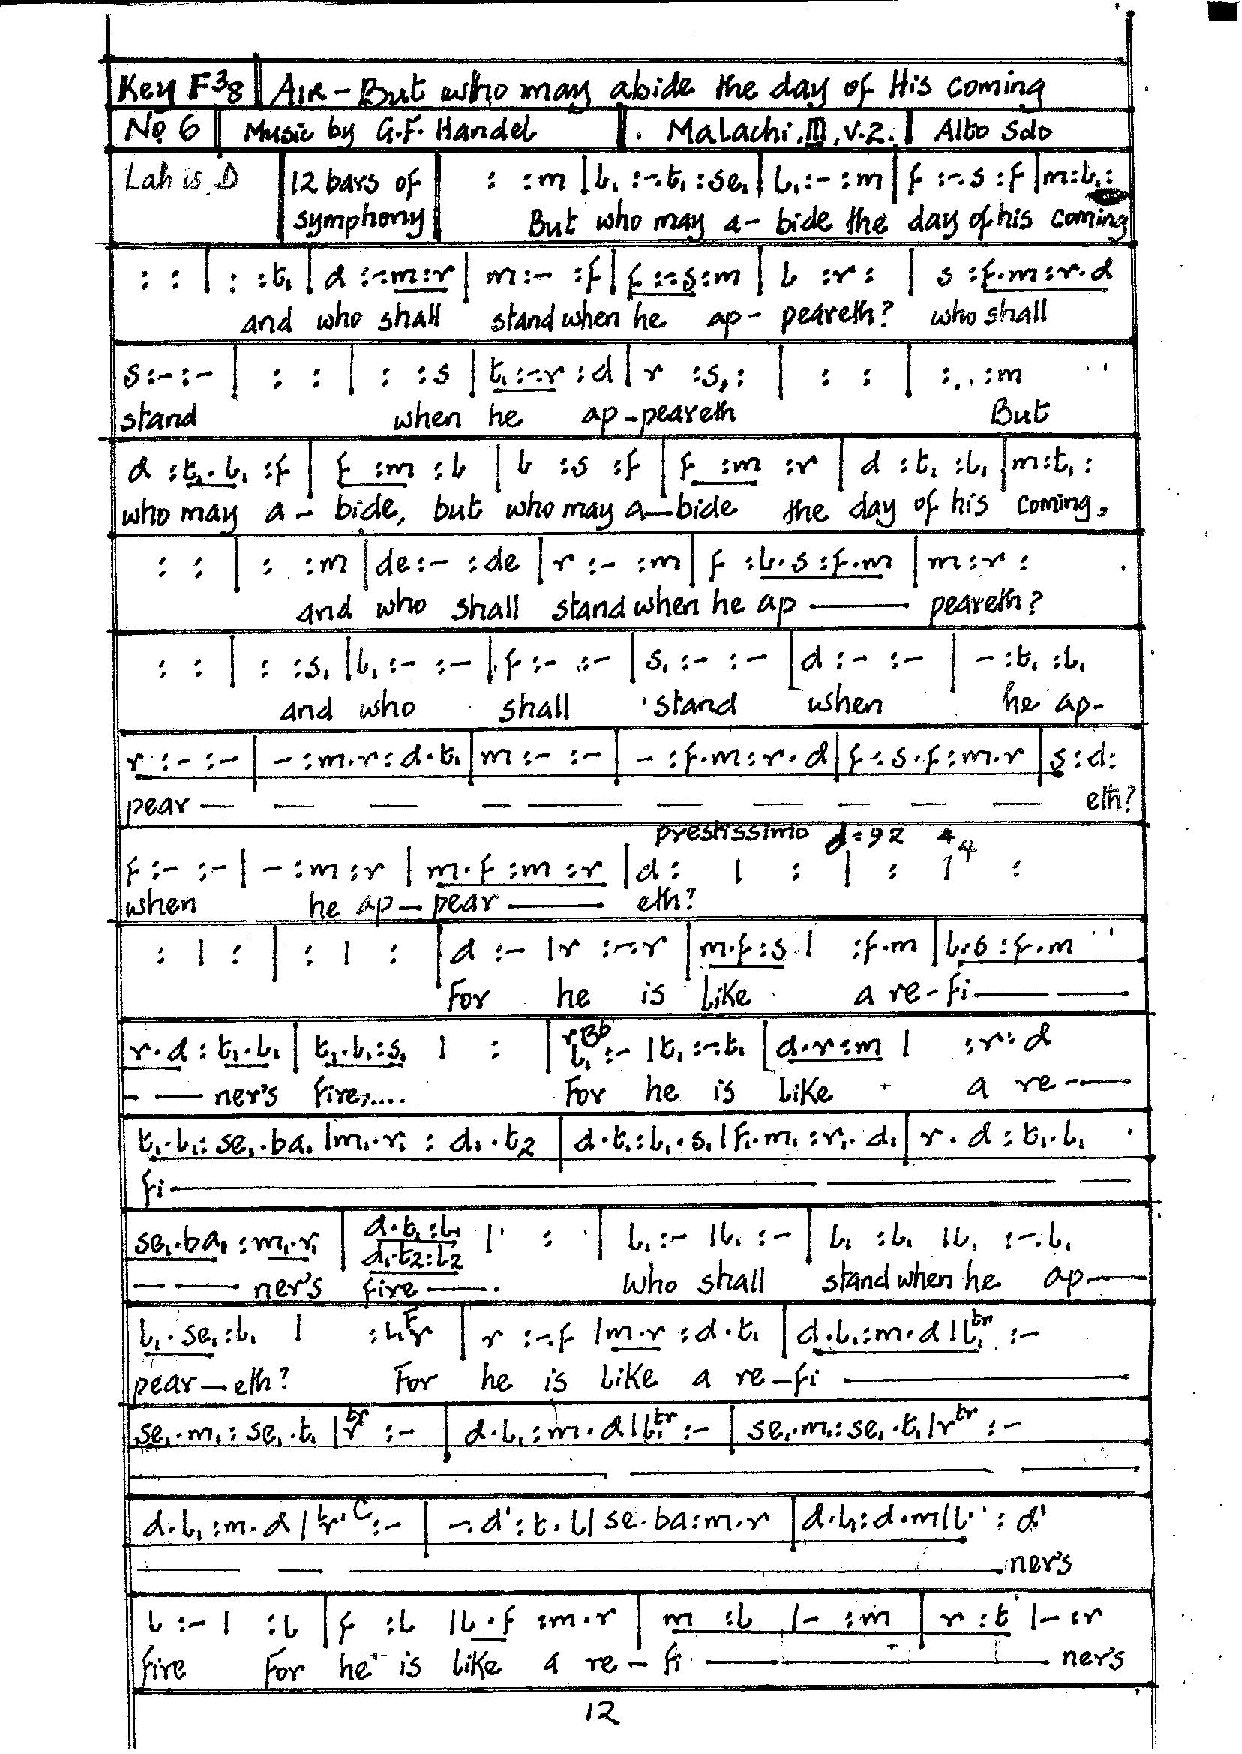 Key F 3/8 | AIR - But who may abide the day of His coming
No 6 | Music by G.F. Handel | . Malachi, III, v.2. | Alto Solo
Lah is D | 12 bars of symphony | : :m | l₁ :-.t₁ :se₁ | l₁ :- :m | f :-.s :f | m :l₁ :
But who may a- bide the day of his coming
: : | : :t₁ | d :-.m :r | m :- :f | f :-.s :m | l :r : | s :f.m :r.d
and who shall stand when he ap- peareth? who shall
s :- :- | : : | : :s | t₁ :-.r :d | r :s₁ : | : : | : :m
stand when he ap-peareth But
d :t₁.l₁ :f | f :m :l | l :s :f | f :m :r | d :t₁ :l₁ | m :t₁ :
who may a- bide, but who may a-bide the day of his coming,
: : | : :m | de :- :de | r :- :m | f :l.s :f.m | m :r :
and who shall stand when he ap —— peareth?
: : | : :s₁ | l₁ :- :- | f :- :- | s₁ :- :- | d :- :- | - :t₁ :l₁
and who shall stand when he ap-
r :- :- | - :m.r :d.t₁ | m :- :- | - :f.m :r.d | f :s.f :m.r | s :d :
pear — — — — — — — — — — eth?
prestissimo d=92 4/4
f :- :- | - :m :r | m.f :m :r | d : | : | : | :
when he ap-pear —— eth?
: | : | : | : | d :- | r :-.r | m.f :s | :f.m | l.s :f.m
For he is like a re-fi —— ——
r.d : t₁.l₁ | t₁.l₁ :s₁ | : | r Bb l₁ :- | t₁ :-.t₁ | d.r :m | :r :d
- —— ner's fire,.... For he is like a re-——
t₁.l₁ : se₁.ba₁ | m₁.r₁ : d₁.t₂ | d.t₁ :l₁.s₁ | f₁.m₁ :r₁.d₁ | r.d : t₁.l₁
fi ————
se₁.ba₁ :m₁.r₁ | d.t₁ :l₁ | : | l₁ :- | l₁ :- | l₁ :l₁ | l₁ :-.l₁
d₁.t₂ :l₂
— —— ner's fire ——. who shall stand when he ap——
l₁.se₁ :l₁ | :l₁ F r | r :-.f | m.r :d.t₁ | d.l₁ :m.d | l₁ tr :-
pear—eth? For he is like a re-fi ————
se₁.m₁ : se₁.t₁ | r tr :- | d.l₁ : m.d | l₁ tr :- | se₁.m₁ : se₁.t₁ | r tr :-
d.l₁ :m.d | l tr C :- | -.d' : t.l | se.ba :m.r | d.l₁ :d.m | l : d'
—— —— ———— ner's
l :- | :l | f :l | l.f :m.r | m :l | - :m | r :t | - :r
fire For he is like a re-fi ———— ner's
12